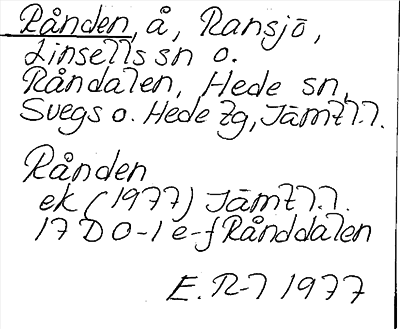 Rånden, å, Ransjö,
Linsells sn o.
Råndalen, Hede sn,
Svegs o. Hede tg, Jämtl.l.
Rånden
ek (1977) Jämtl.l.
17 D 0-1 e-f Rånddalen
E. R-7 1977